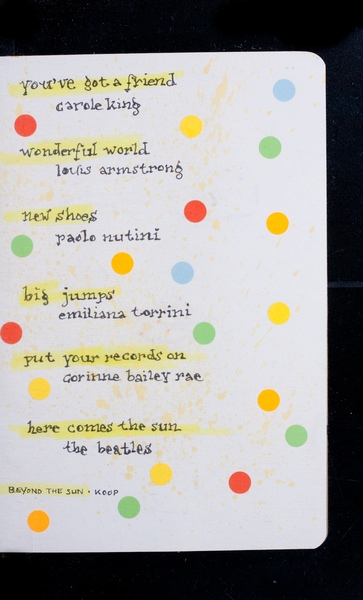 you've got a friend
carole king
wonderful world
louis armstrong
new shoes
paolo nutini
big jumps
emiliana torrini
put your records on
corinne bailey rae
here comes the sun
the beatles
BEYOND THE SUN • KOOP